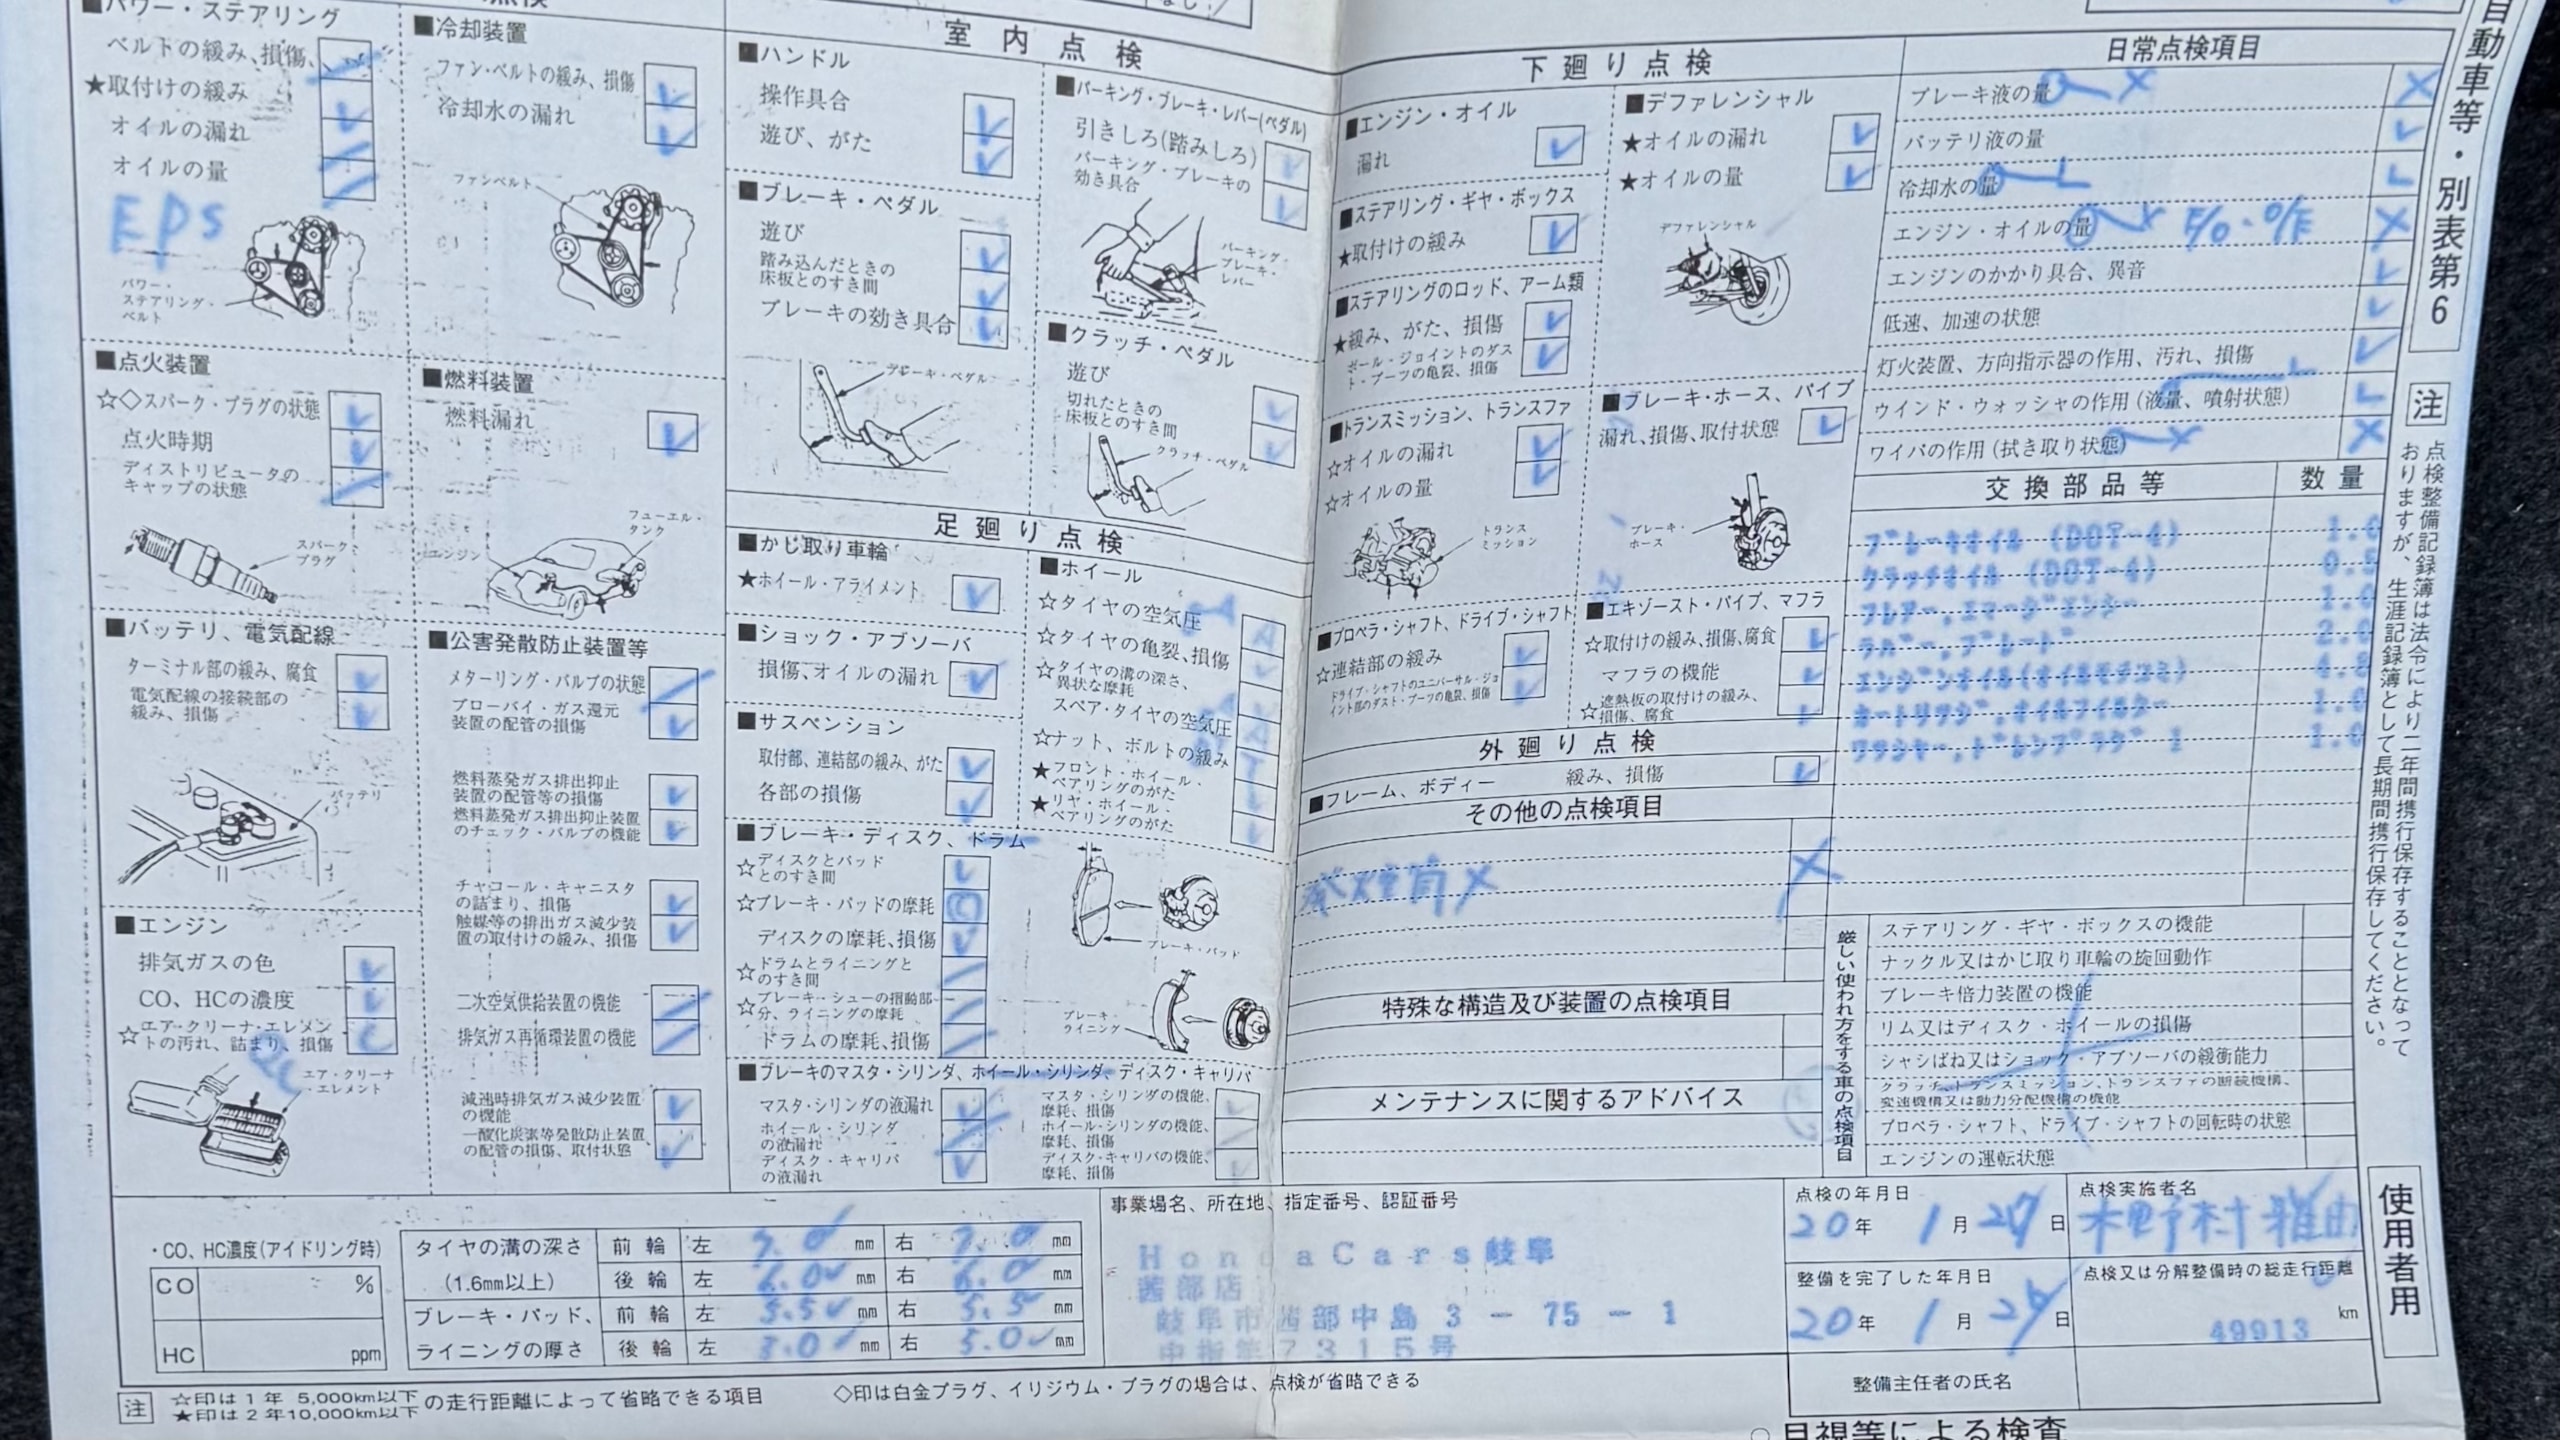 点検
■パワー・ステアリング
ベルトの緩み、損傷、
★取付けの緩み
オイルの漏れ
オイルの量
EPS
パワー・
ステアリング・
ベルト
■冷却装置
ファン・ベルトの緩み、損傷
冷却水の漏れ
ファンベルト
■点火装置
☆◇スパーク・プラグの状態
点火時期
ディストリビュータの
キャップの状態
スパーク
プラグ
■燃料装置
燃料漏れ
フューエル・
タンク
エンジン
■バッテリ、電気配線
ターミナル部の緩み、腐食
電気配線の接続部の
緩み、損傷
バッテリ
■公害発散防止装置等
メターリング・バルブの状態
ブローバイ・ガス還元
装置の配管の損傷
燃料蒸発ガス排出抑止
装置の配管等の損傷
燃料蒸発ガス排出抑止装置
のチェック・バルブの機能
チャコール・キャニスタ
の詰まり、損傷
触媒等の排出ガス減少装
置の取付けの緩み、損傷
二次空気供給装置の機能
排気ガス再循環装置の機能
減速時排気ガス減少装置
の機能
一酸化炭素等発散防止装置
の配管の損傷、取付状態
■エンジン
排気ガスの色
CO、HCの濃度
☆エア・クリーナ・エレメン
トの汚れ、詰まり、損傷
エア・クリーナ
・エレメント
室内点検
■ハンドル
操作具合
遊び、がた
■ブレーキ・ペダル
遊び
踏み込んだときの
床板とのすき間
ブレーキの効き具合
ブレーキ・ペダル
■パーキング・ブレーキ・レバー(ペダル)
引きしろ(踏みしろ)
パーキング・ブレーキの
効き具合
パーキング・
ブレーキ・
レバー
■クラッチ・ペダル
遊び
切れたときの
床板とのすき間
クラッチ・ペダル
足廻り点検
■かじ取り車輪
★ホイール・アライメント
■ショック・アブソーバ
損傷、オイルの漏れ
■サスペンション
取付部、連結部の緩み、がた
各部の損傷
■ホイール
☆タイヤの空気圧
☆タイヤの亀裂、損傷
☆タイヤの溝の深さ、
異状な摩耗
スペア・タイヤの空気圧
☆ナット、ボルトの緩み
★フロント・ホイール・
ベアリングのがた
★リヤ・ホイール・
ベアリングのがた
■ブレーキ・ディスク、ドラム
☆ディスクとパッド
とのすき間
☆ブレーキ・パッドの摩耗
ディスクの摩耗、損傷
☆ドラムとライニングと
のすき間
☆ブレーキ・シューの摺動部
分、ライニングの摩耗
ドラムの摩耗、損傷
ブレーキ・パッド
ブレーキ・
ライニング
■ブレーキのマスタ・シリンダ、ホイール・シリンダ、ディスク・キャリパ
マスタ・シリンダの液漏れ
ホイール・シリンダ
の液漏れ
ディスク・キャリパ
の液漏れ
マスタ・シリンダの機能、
摩耗、損傷
ホイール・シリンダの機能、
摩耗、損傷
ディスク・キャリパの機能、
摩耗、損傷
下廻り点検
■エンジン・オイル
漏れ
■ステアリング・ギヤ・ボックス
★取付けの緩み
■ステアリングのロッド、アーム類
★緩み、がた、損傷
ボール・ジョイントのダス
ト・ブーツの亀裂、損傷
■トランスミッション、トランスファ
☆オイルの漏れ
☆オイルの量
トランス
ミッション
■プロペラ・シャフト、ドライブ・シャフト
☆連結部の緩み
ドライブ・シャフトのユニバーサル・ジョ
イント部のダスト・ブーツの亀裂、損傷
■デファレンシャル
★オイルの漏れ
★オイルの量
デファレンシャル
■ブレーキ・ホース、パイプ
漏れ、損傷、取付状態
ブレーキ・
ホース
■エキゾースト・パイプ、マフラ
☆取付けの緩み、損傷、腐食
マフラの機能
☆遮熱板の取付けの緩み、
損傷、腐食
外廻り点検
■フレーム、ボディー 緩み、損傷
その他の点検項目
発炎筒 ×
特殊な構造及び装置の点検項目
メンテナンスに関するアドバイス
日常点検項目
ブレーキ液の量
バッテリ液の量
冷却水の量
エンジン・オイルの量 E/O・O/E
エンジンのかかり具合、異音
低速、加速の状態
灯火装置、方向指示器の作用、汚れ、損傷
ウインド・ウォッシャの作用(液量、噴射状態)
ワイパの作用(拭き取り状態)
交換部品等 数量
ブレーキオイル (DOT-4) 1.0
クラッチオイル (DOT-4) 0.5
フレアー,エマージェンシー 1.0
ラバー,ブレード 2.0
エンジンオイル(オイルモチコミ) 4.8
カートリッジ,オイルフィルター 1.0
ワッシャー,ドレンプラグ 1.0
厳しい使われ方をする車の点検項目
ステアリング・ギヤ・ボックスの機能
ナックル又はかじ取り車輪の旋回動作
ブレーキ倍力装置の機能
リム又はディスク・ホイールの損傷
シャシばね又はショック・アブソーバの緩衝能力
クラッチ、トランスミッション、トランスファの断続機構、
変速機構又は動力分配機構の機能
プロペラ・シャフト、ドライブ・シャフトの回転時の状態
エンジンの運転状態
自動車等・別表第6
注
点検整備記録簿は法令により二年間携行保存することとなって
おりますが、生涯記録簿として長期間携行保存してください。
使用者用
・CO、HC濃度(アイドリング時)
CO %
HC ppm
タイヤの溝の深さ
(1.6mm以上)
前輪 左 7.0 mm 右 7.0 mm
後輪 左 6.0 mm 右 6.0 mm
ブレーキ・パッド、
ライニングの厚さ
前輪 左 5.5 mm 右 5.5 mm
後輪 左 mm 右 5.0 mm
事業場名、所在地、指定番号、認証番号
HondaCars岐阜
茜部店
岐阜市茜部中島 3 - 75 - 1
中指第7315号
点検の年月日
20年 1月 日
整備を完了した年月日
20年 1月 日
点検実施者名
点検又は分解整備時の総走行距離
49913 km
整備主任者の氏名
注 ☆印は1年 5,000km以下
★印は2年10,000km以下
の走行距離によって省略できる項目
◇印は白金プラグ、イリジウム・プラグの場合は、点検が省略できる
○目視等による検査